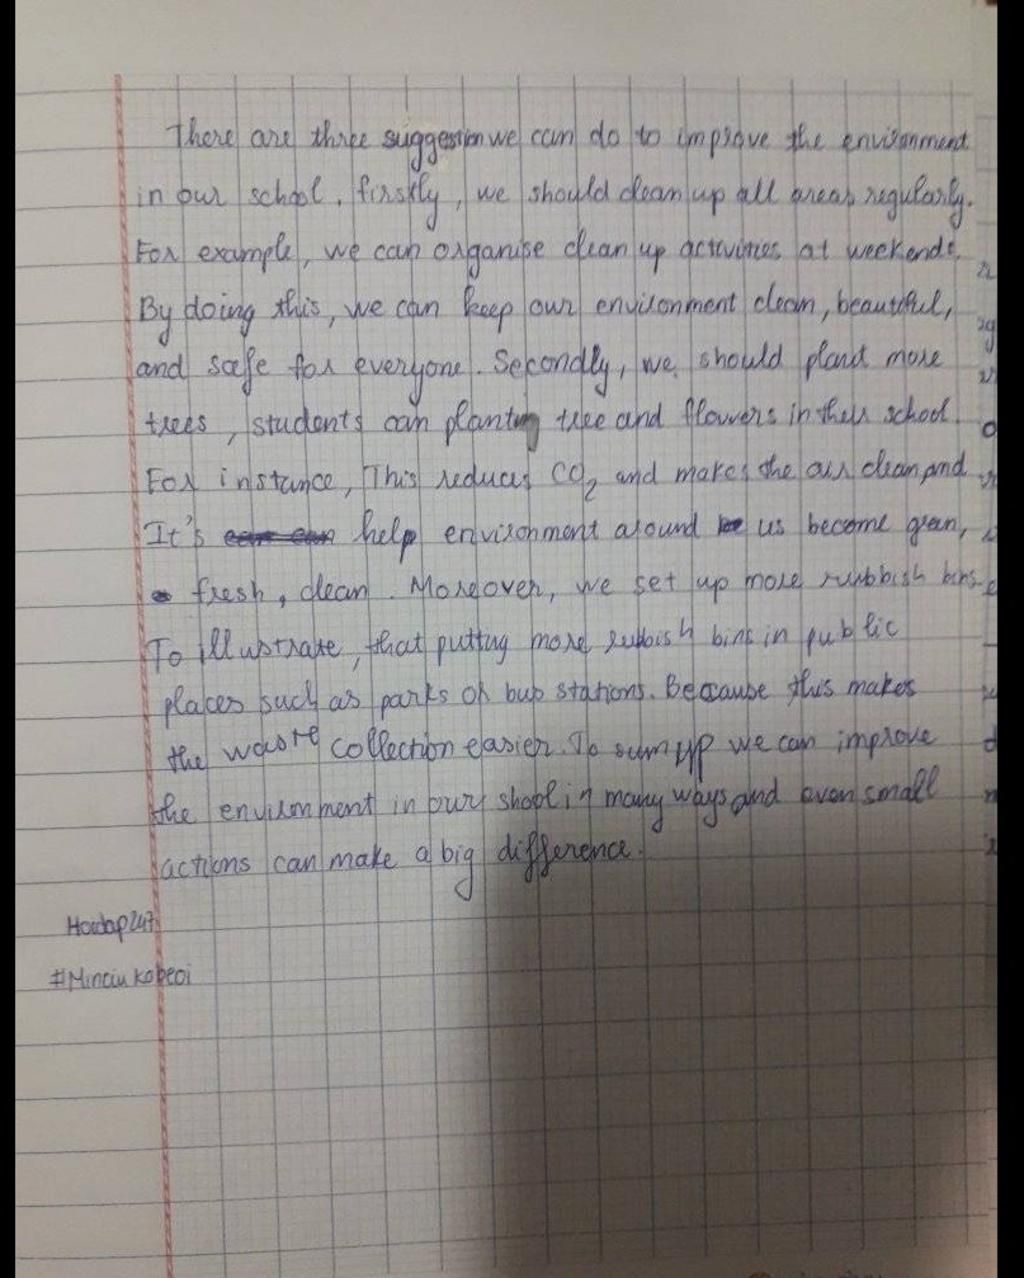 There are three suggestion we can do to improve the environment
in our school. firstly, we should clean up all areas regularly.
For example, we can organise clean up activities at weekends.
By doing this, we can keep our environment clean, beautiful,
and safe for everyone. Secondly, we should plant more
trees, students can planting tree and flowers in their school.
For instance, This reduces CO2 and makes the air clean and
It's help environment around us become green,
fresh, clean. Moreover, we set up more rubbish bins.
To illustrate, that putting more rubbish bins in public
places such as parks or bus stations. Because this makes
the waste collection easier. To sum up we can improve
the environment in our shool in many ways and even small
actions can make a big difference.
Hoidap247
#Minciu kobeoi